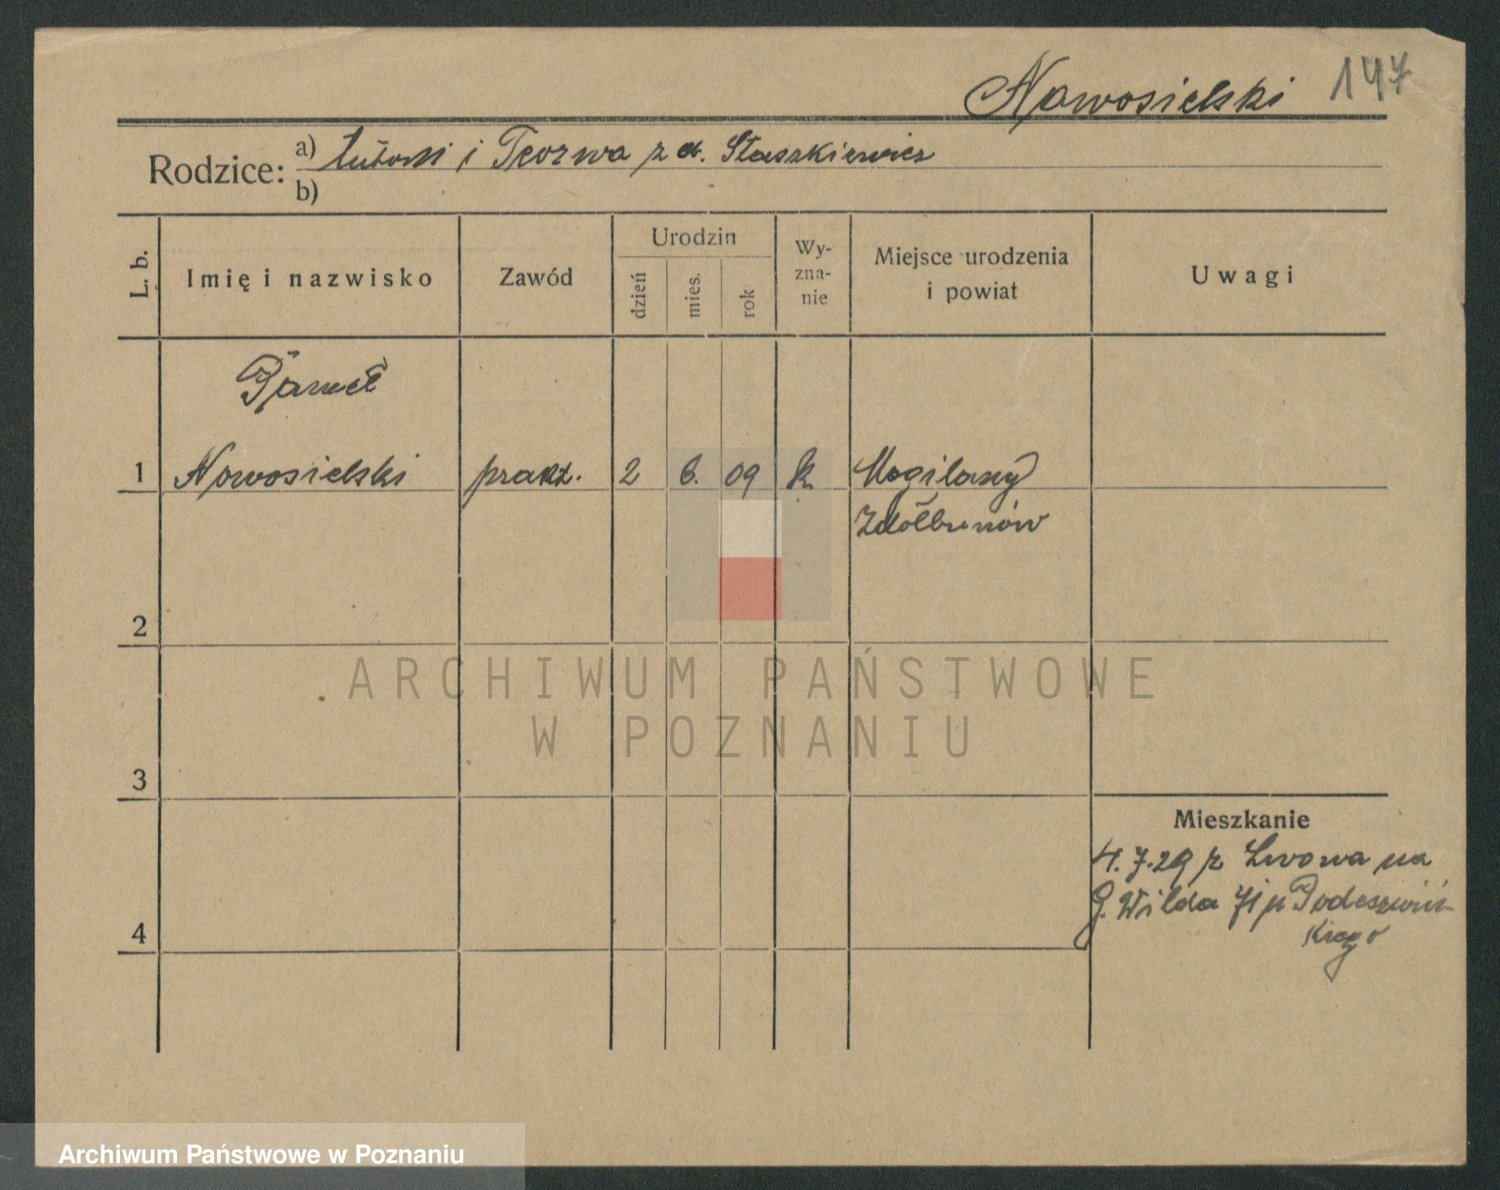 Nowosielski 147
Rodzice: a) i z d. Staszkiewicz
b)
L. b.
Imię i nazwisko
Zawód
Urodzin
dzień
mies.
rok
Wy-
zna-
nie
Miejsce urodzenia
i powiat
Uwagi
Paweł
1 Nowosielski 2 6. 09 k Mogilany
Zdołbunów
2
3
4
Mieszkanie
4.7.29 z Lwowa na
G. Wilda 71
kiego
ARCHIWUM PAŃSTWOWE
W POZNANIU
Archiwum Państwowe w Poznaniu